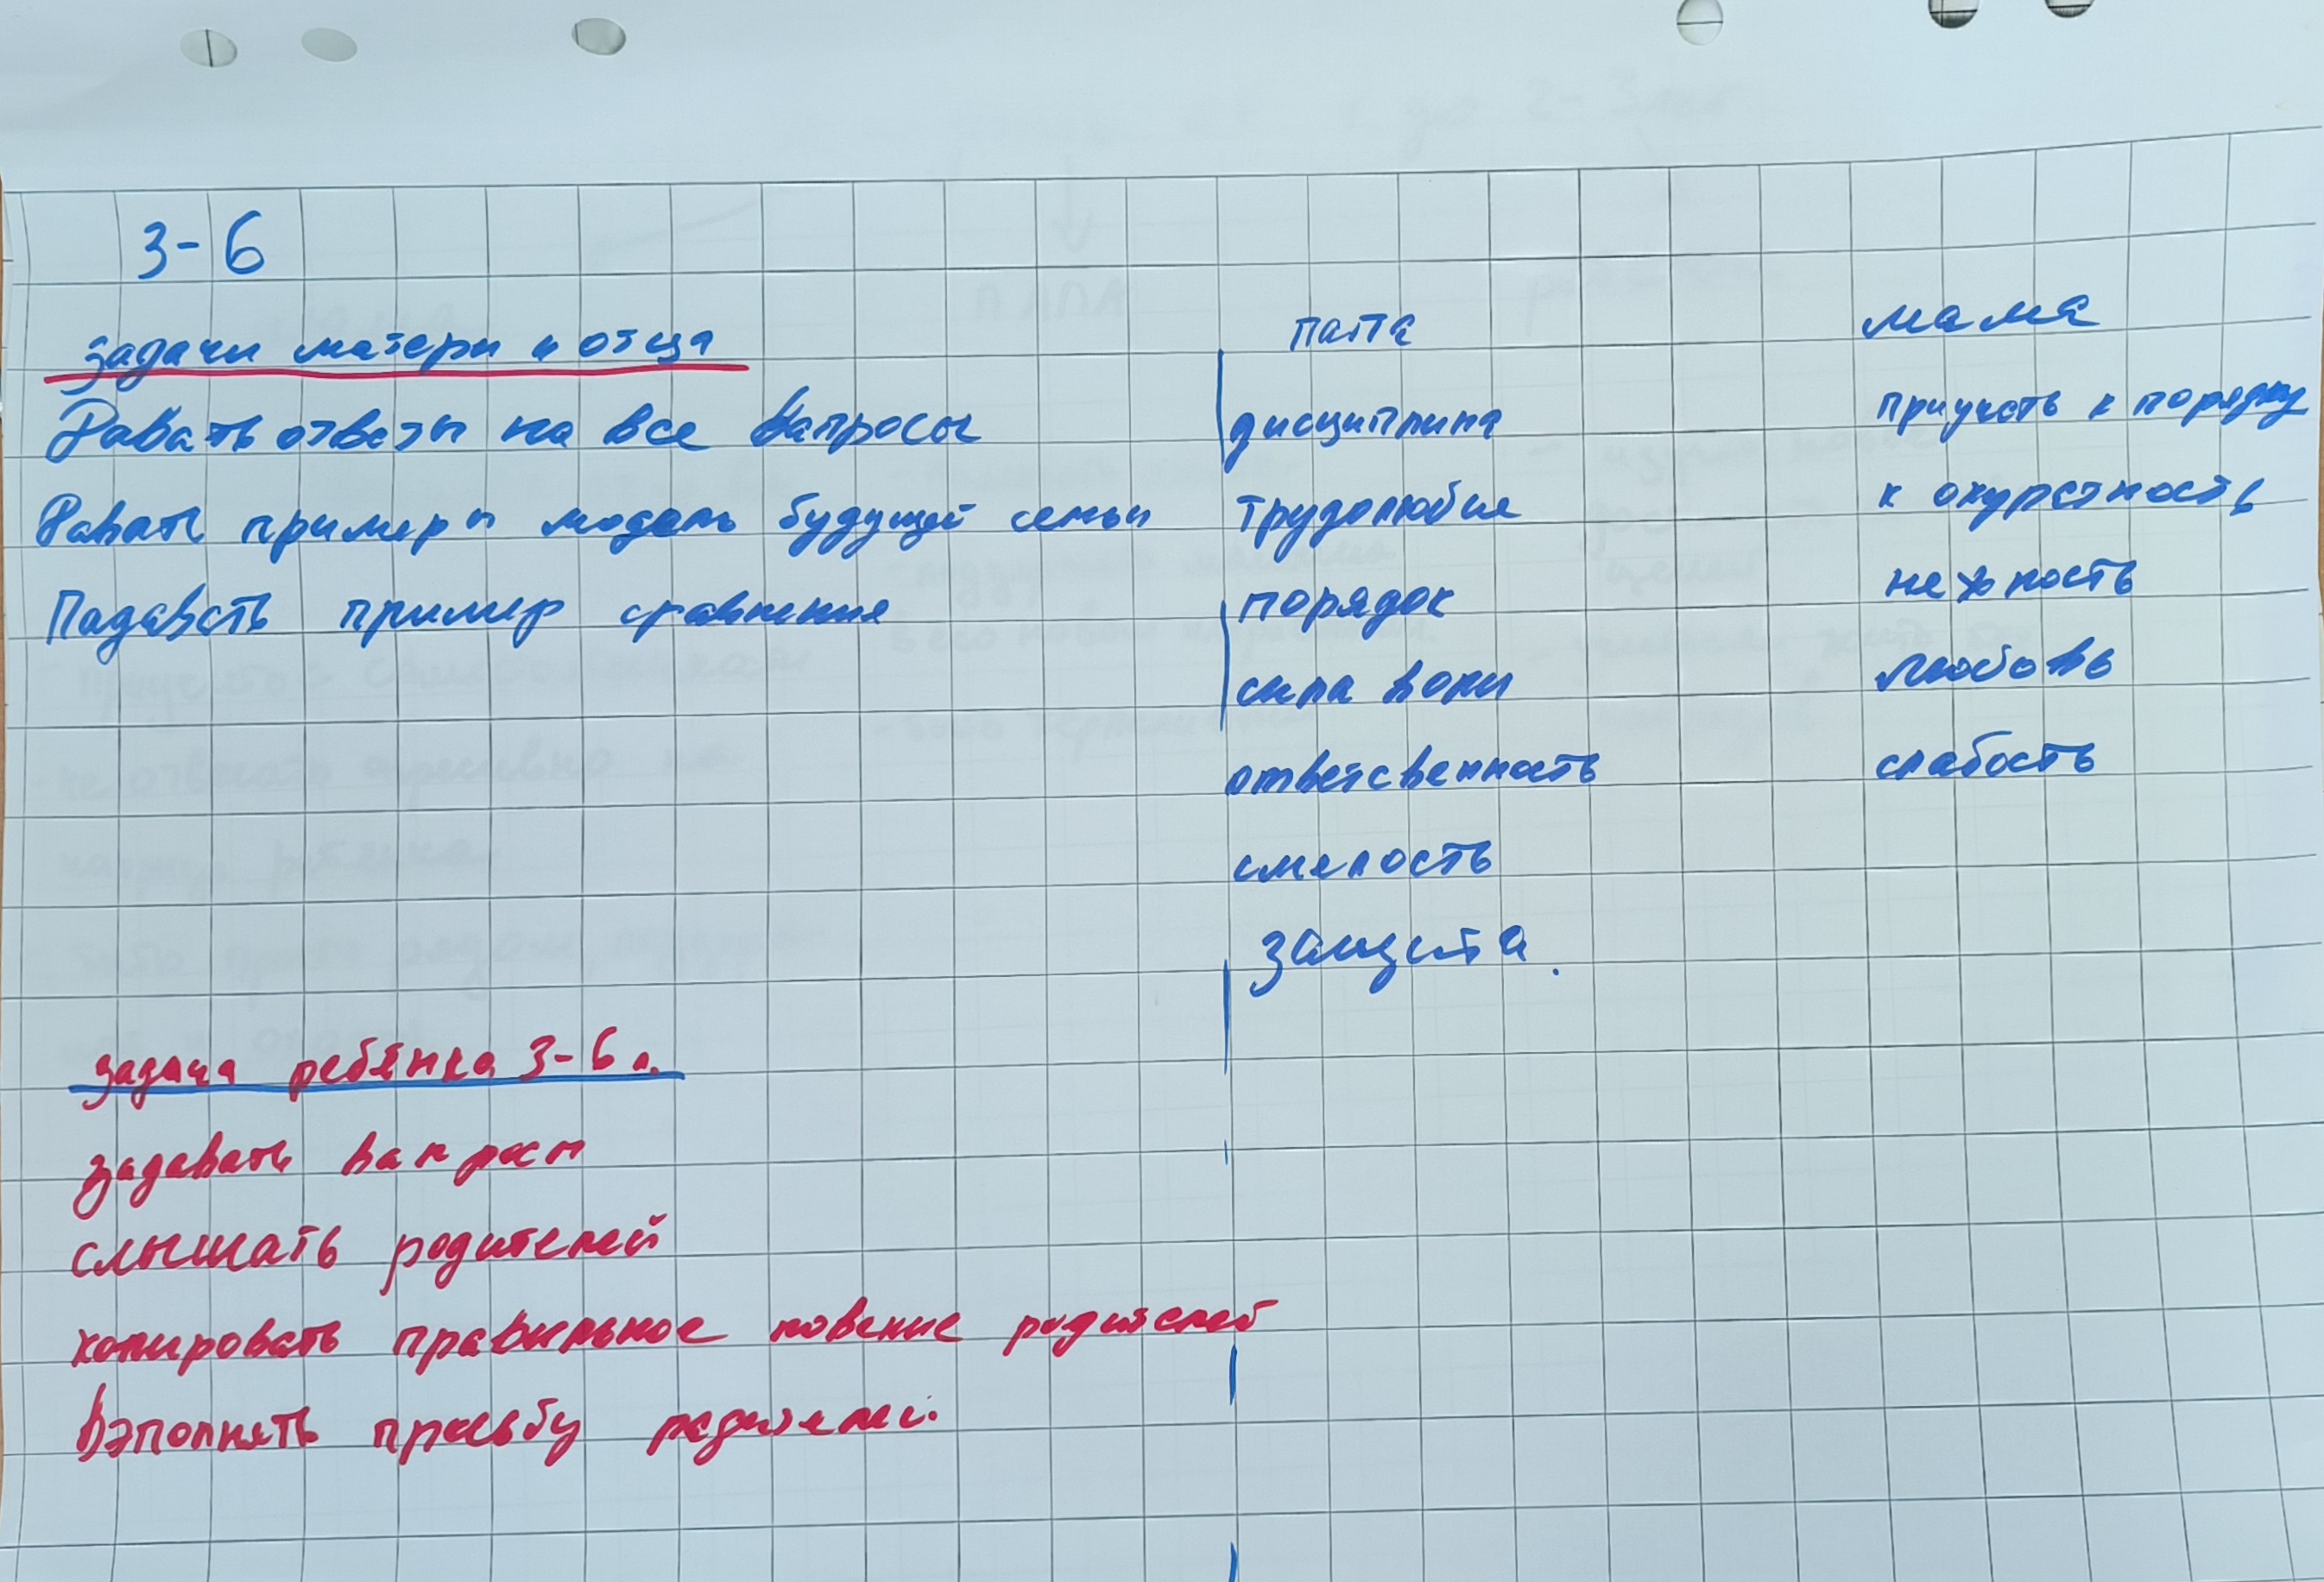 3-6
задачи матери и отца
Давать ответы на все вапросы
Давать примеры модель будущей семьи
Падавать пример сравнения
папа
дисциплина
трудолюбие
порядок
сила воли
ответсвенность
смелость
защита.
мама
приучать к порядку
к окуратность
нежность
любовь
слабость
задача ребёнка 3-6 л.
задавать вапросы
слышать родителей
копировать правильное повение родителей
Вэполнять просьбу радителей.